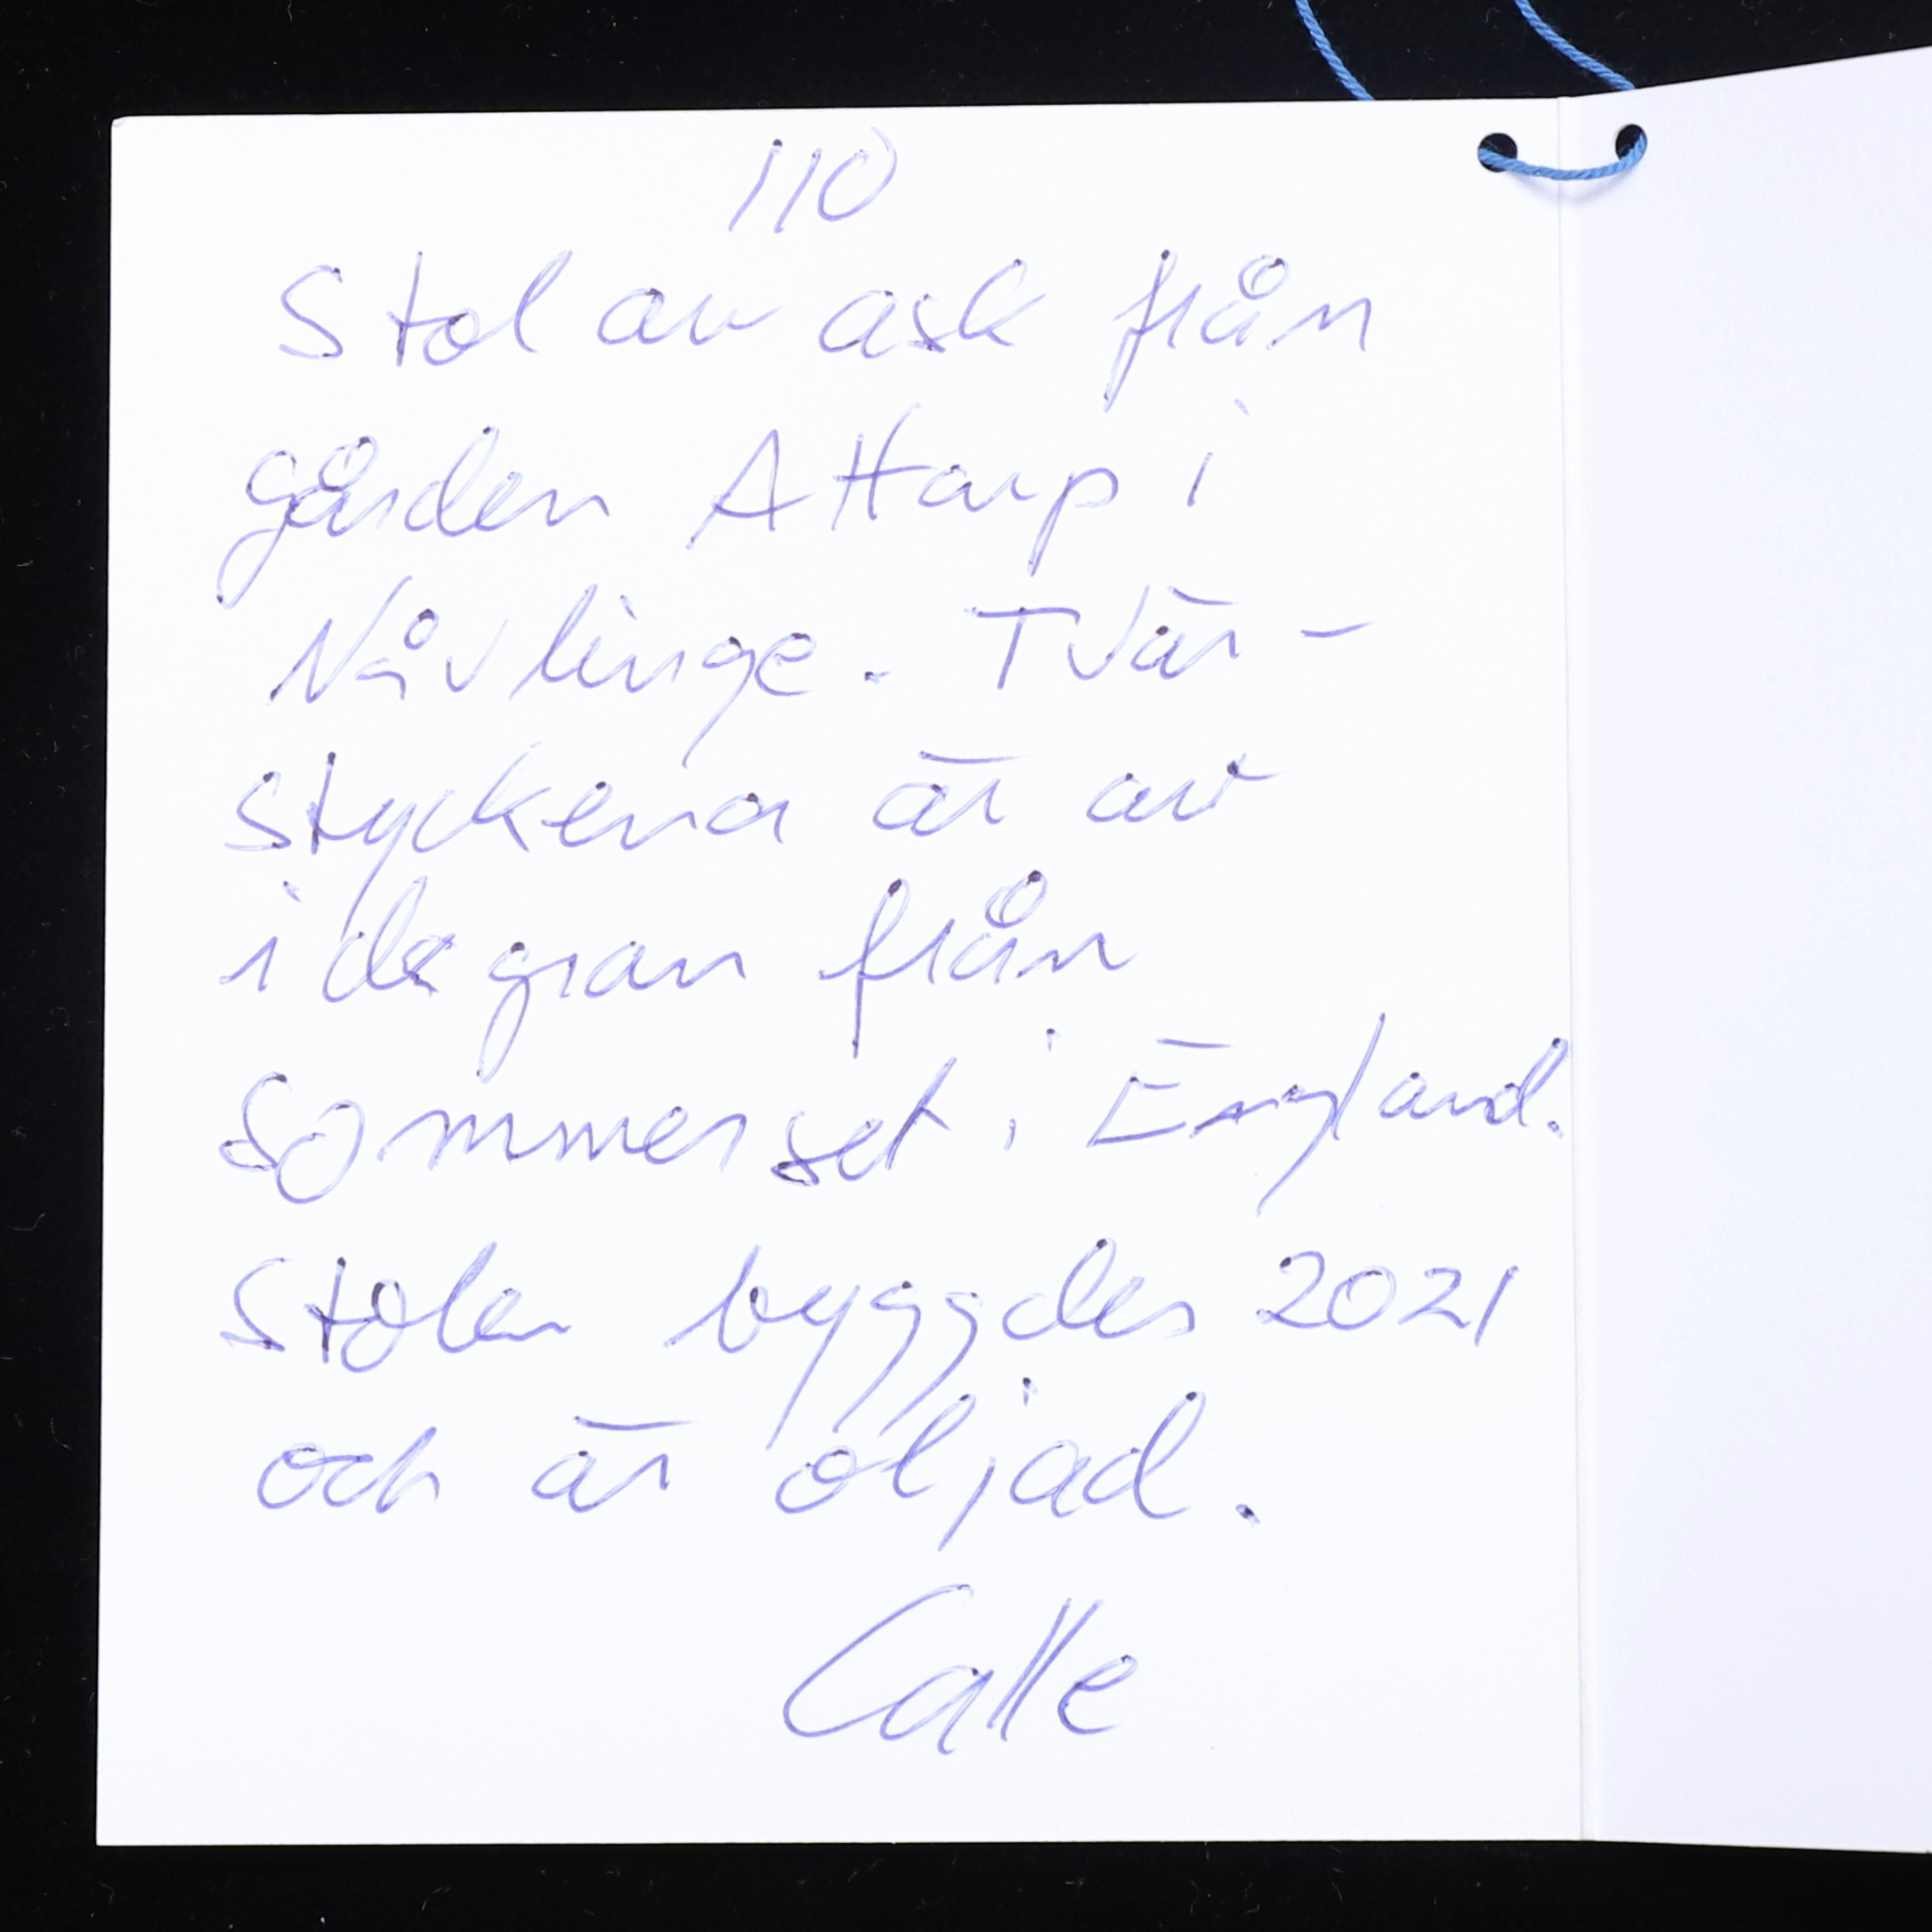 110
Stol av ask från
gården Attarp i
Nävlinge. Tvär-
styckena är av
idegran från
Sommerset i England.
Stolen byggdes 2021
och är oljad.
Calle